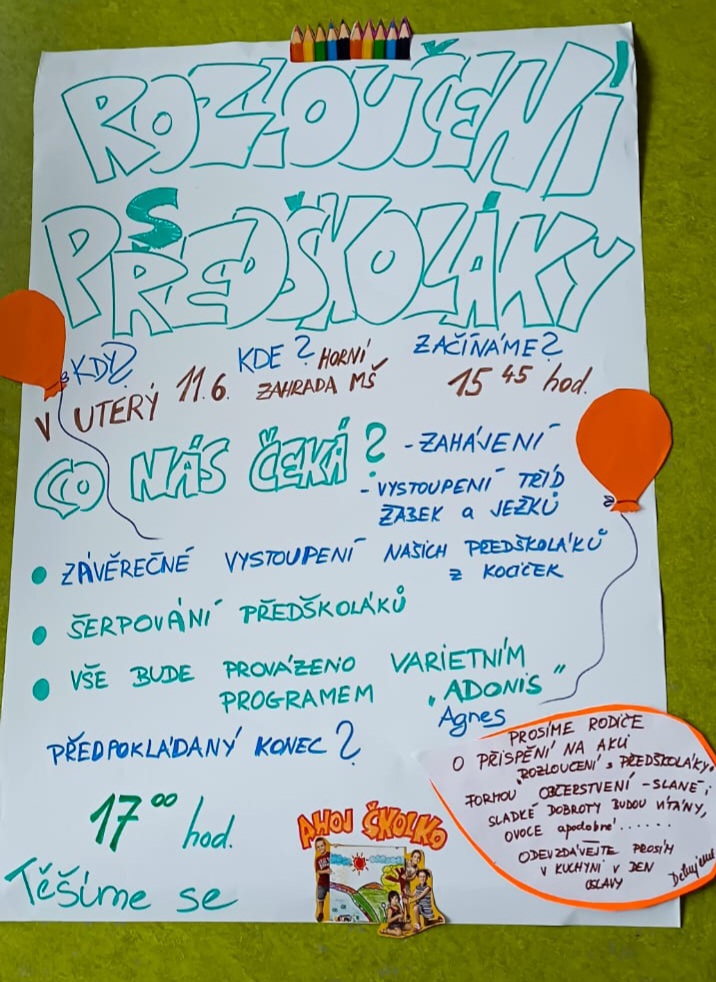 ROZLOUČENÍ
S
PŘEDŠKOLÁKY
KDY?
V UTERÝ 11.6.
KDE? HORNÍ
ZAHRADA MŠ
ZAČÍNÁME?
15 45 hod.
CO NÁS ČEKÁ?
- ZAHÁJENÍ
- VYSTOUPENÍ TŘÍD
ŽABEK a JEŽKŮ
• ZÁVĚREČNÉ VYSTOUPENÍ NAŠICH PŘEDŠKOLÁKŮ
Z KOČIČEK
• ŠERPOVÁNÍ PŘEDŠKOLÁKŮ
• VŠE BUDE PROVÁZENO VARIETNÍM
PROGRAMEM „ADONIS"
Agnes
PŘEDPOKLÁDANÝ KONEC?
17 00 hod.
Těšíme se
AHOJ ŠKOLKO
PROSÍME RODIČE
O PŘISPĚNÍ NA AKCI
„ROZLOUČENÍ s PŘEDŠKOLÁKY"
FORMOU OBČERSTVENÍ - SLANÉ i
SLADKÉ DOBROTY BUDOU VÍTÁNY,
OVOCE apodobně......
ODEVZDÁVEJTE PROSÍM
V KUCHYNI V DEN
OSLAVY
Děkujeme